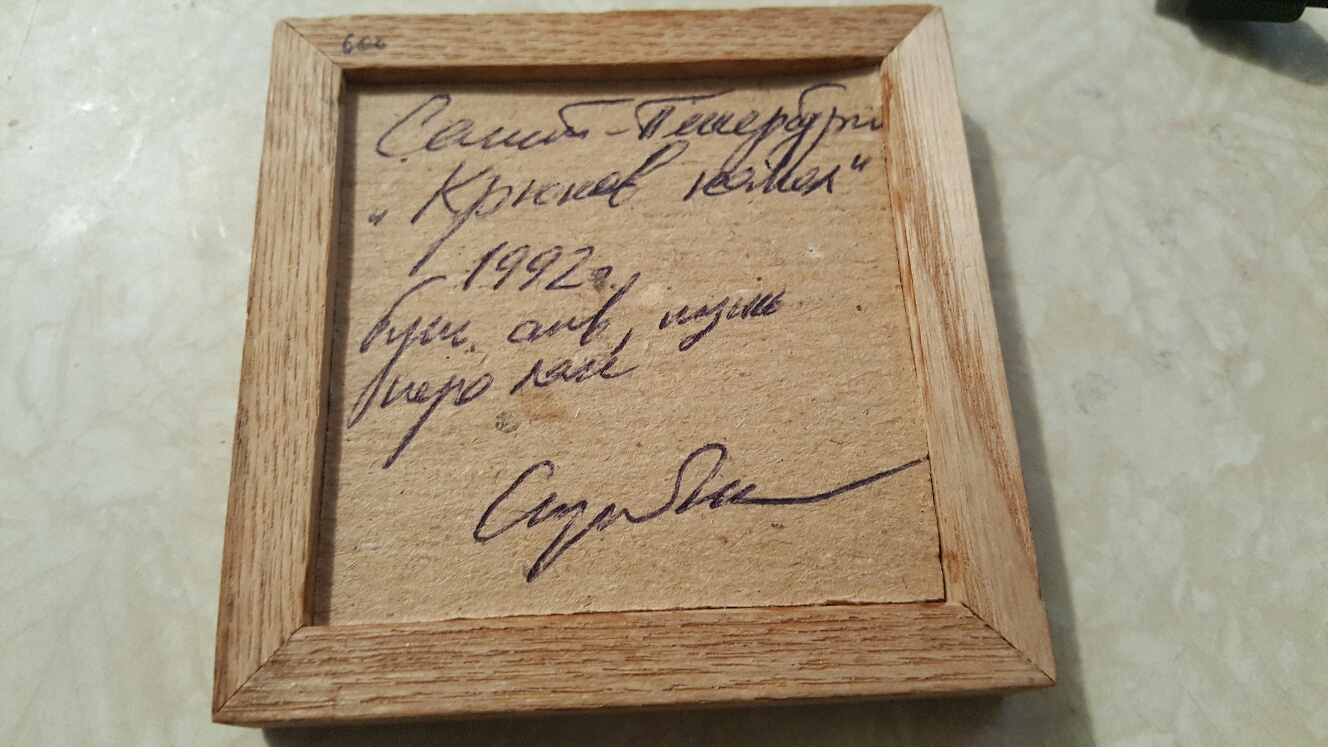 666
Санкт-Петербург
„Крюков канал“
1992г.
бум. акв, тушь
перо лак